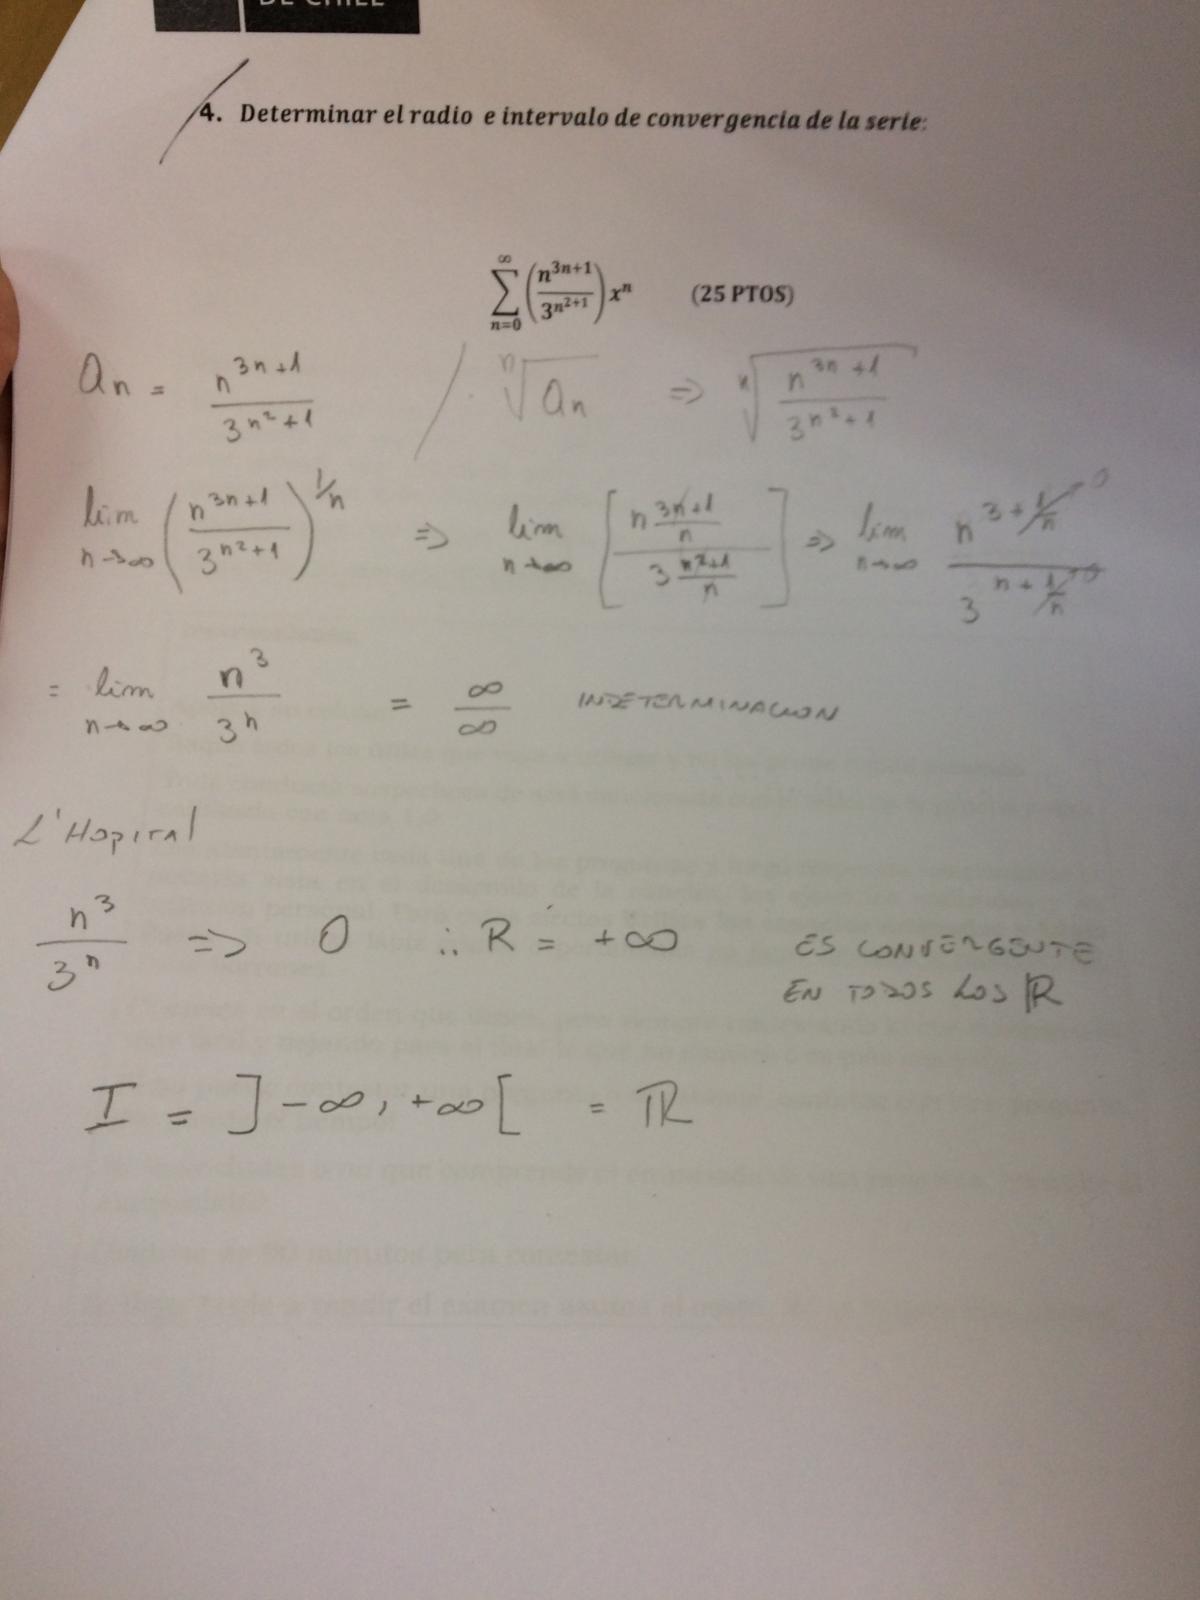 DE CHILE
4. Determinar el radio e intervalo de convergencia de la serie:
∑_{n=0}^{∞} (n^{3n+1}/3^{n^2+1}) x^n (25 PTOS)
a_n = n^{3n+1}/3^{n^2+1} / · ⁿ√a_n => ⁿ√(n^{3n+1}/3^{n^2+1})
lim_{n→∞} (n^{3n+1}/3^{n^2+1})^{1/n} => lim_{n→∞} [n^{(3n+1)/n}/3^{(n^2+1)/n}] => lim_{n→∞} n^{3+1/n → 0}/3^{n+1/n → 0}
= lim_{n→∞} n^3/3^n = ∞/∞ INDETERMINACION
L'Hopital
n^3/3^n => 0 ∴ R = +∞ ES CONVERGENTE
EN TODOS LOS ℝ
I = ]-∞, +∞[ = ℝ